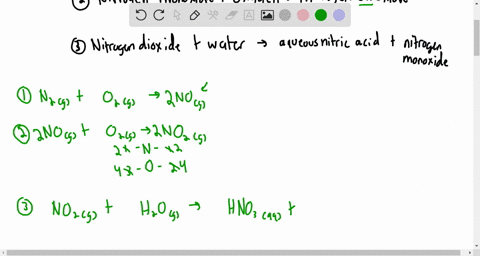 ③ Nitrogen dioxide + water → aqueous nitric acid + nitrogen monoxide
① N₂(g) + O₂(g) → 2NO(g)
② 2NO(g) + O₂(g) → 2NO₂(g)
2x - N - x2
4x - O - x4
③ NO₂(g) + H₂O(g) → HNO₃(aq) +